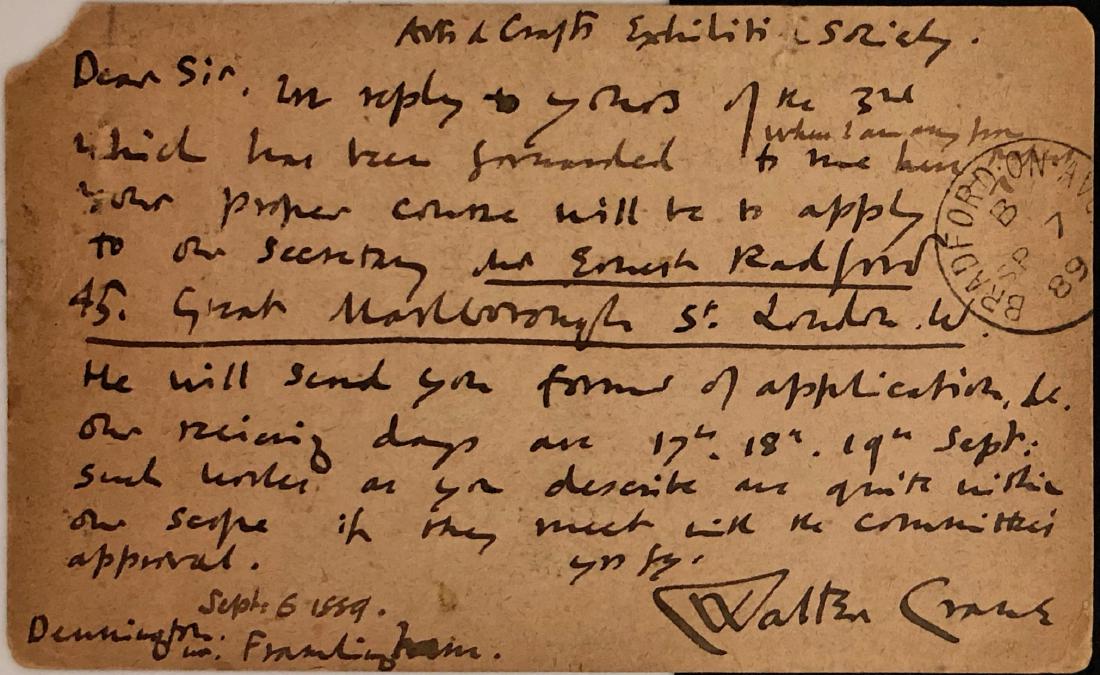 Arts & Crafts Exhibition Society.
Dear Sir, In reply to yours of the 3rd
when I am away from
which has been forwarded to me here
your proper course will be to apply
to our Secretary Mr Ernest Radford
45. Great Marlborough St. London. W.
He will send you forms of application, &c.
our receiving days are 17th. 18th. 19th Sept:
Such works as you describe are quite within
our scope if they meet with the committee's
approval.
yrs fy.
Walter Crane
Sept: 6 1889.
Dennington.
nr. Framlingham.
BRADFORD-ON-AV
B
SP 7
89